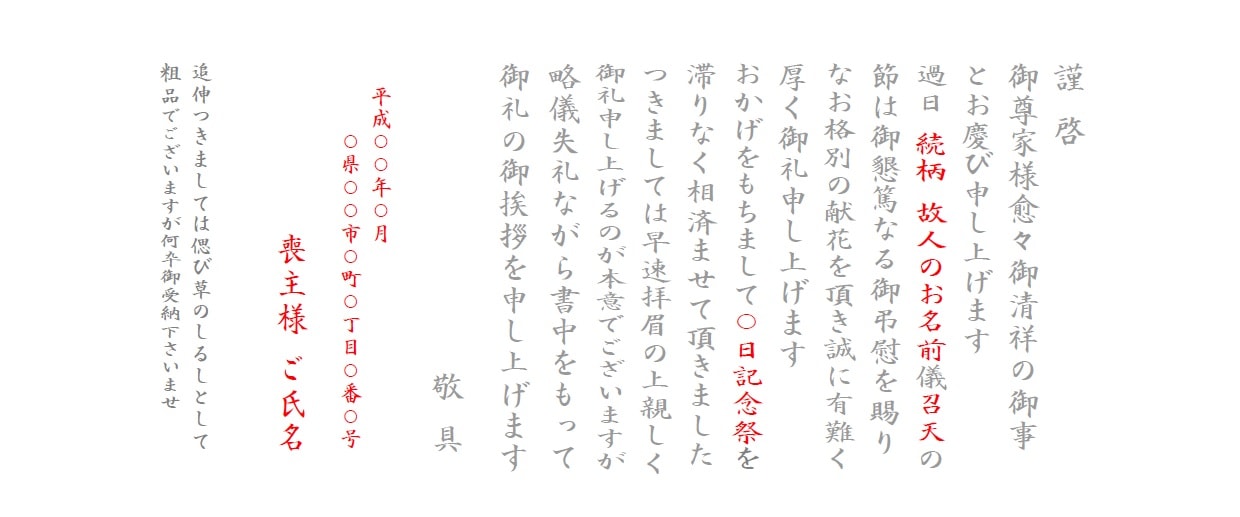 謹啓
御尊家様愈々御清祥の御事
とお慶び申し上げます
過日 続柄 故人のお名前儀召天の
節は御懇篤なる御弔慰を賜り
なお格別の献花を頂き誠に有難く
厚く御礼申し上げます
おかげをもちまして○日記念祭を
滞りなく相済ませて頂きました
つきましては早速拝眉の上親しく
御礼申し上げるのが本意でございますが
略儀失礼ながら書中をもって
御礼の御挨拶を申し上げます
敬具
平成○○年○月
○県○○市○町○丁目○番○号
喪主様 ご氏名
追伸つきましては偲び草のしるしとして
粗品でございますが何卒御受納下さいませ